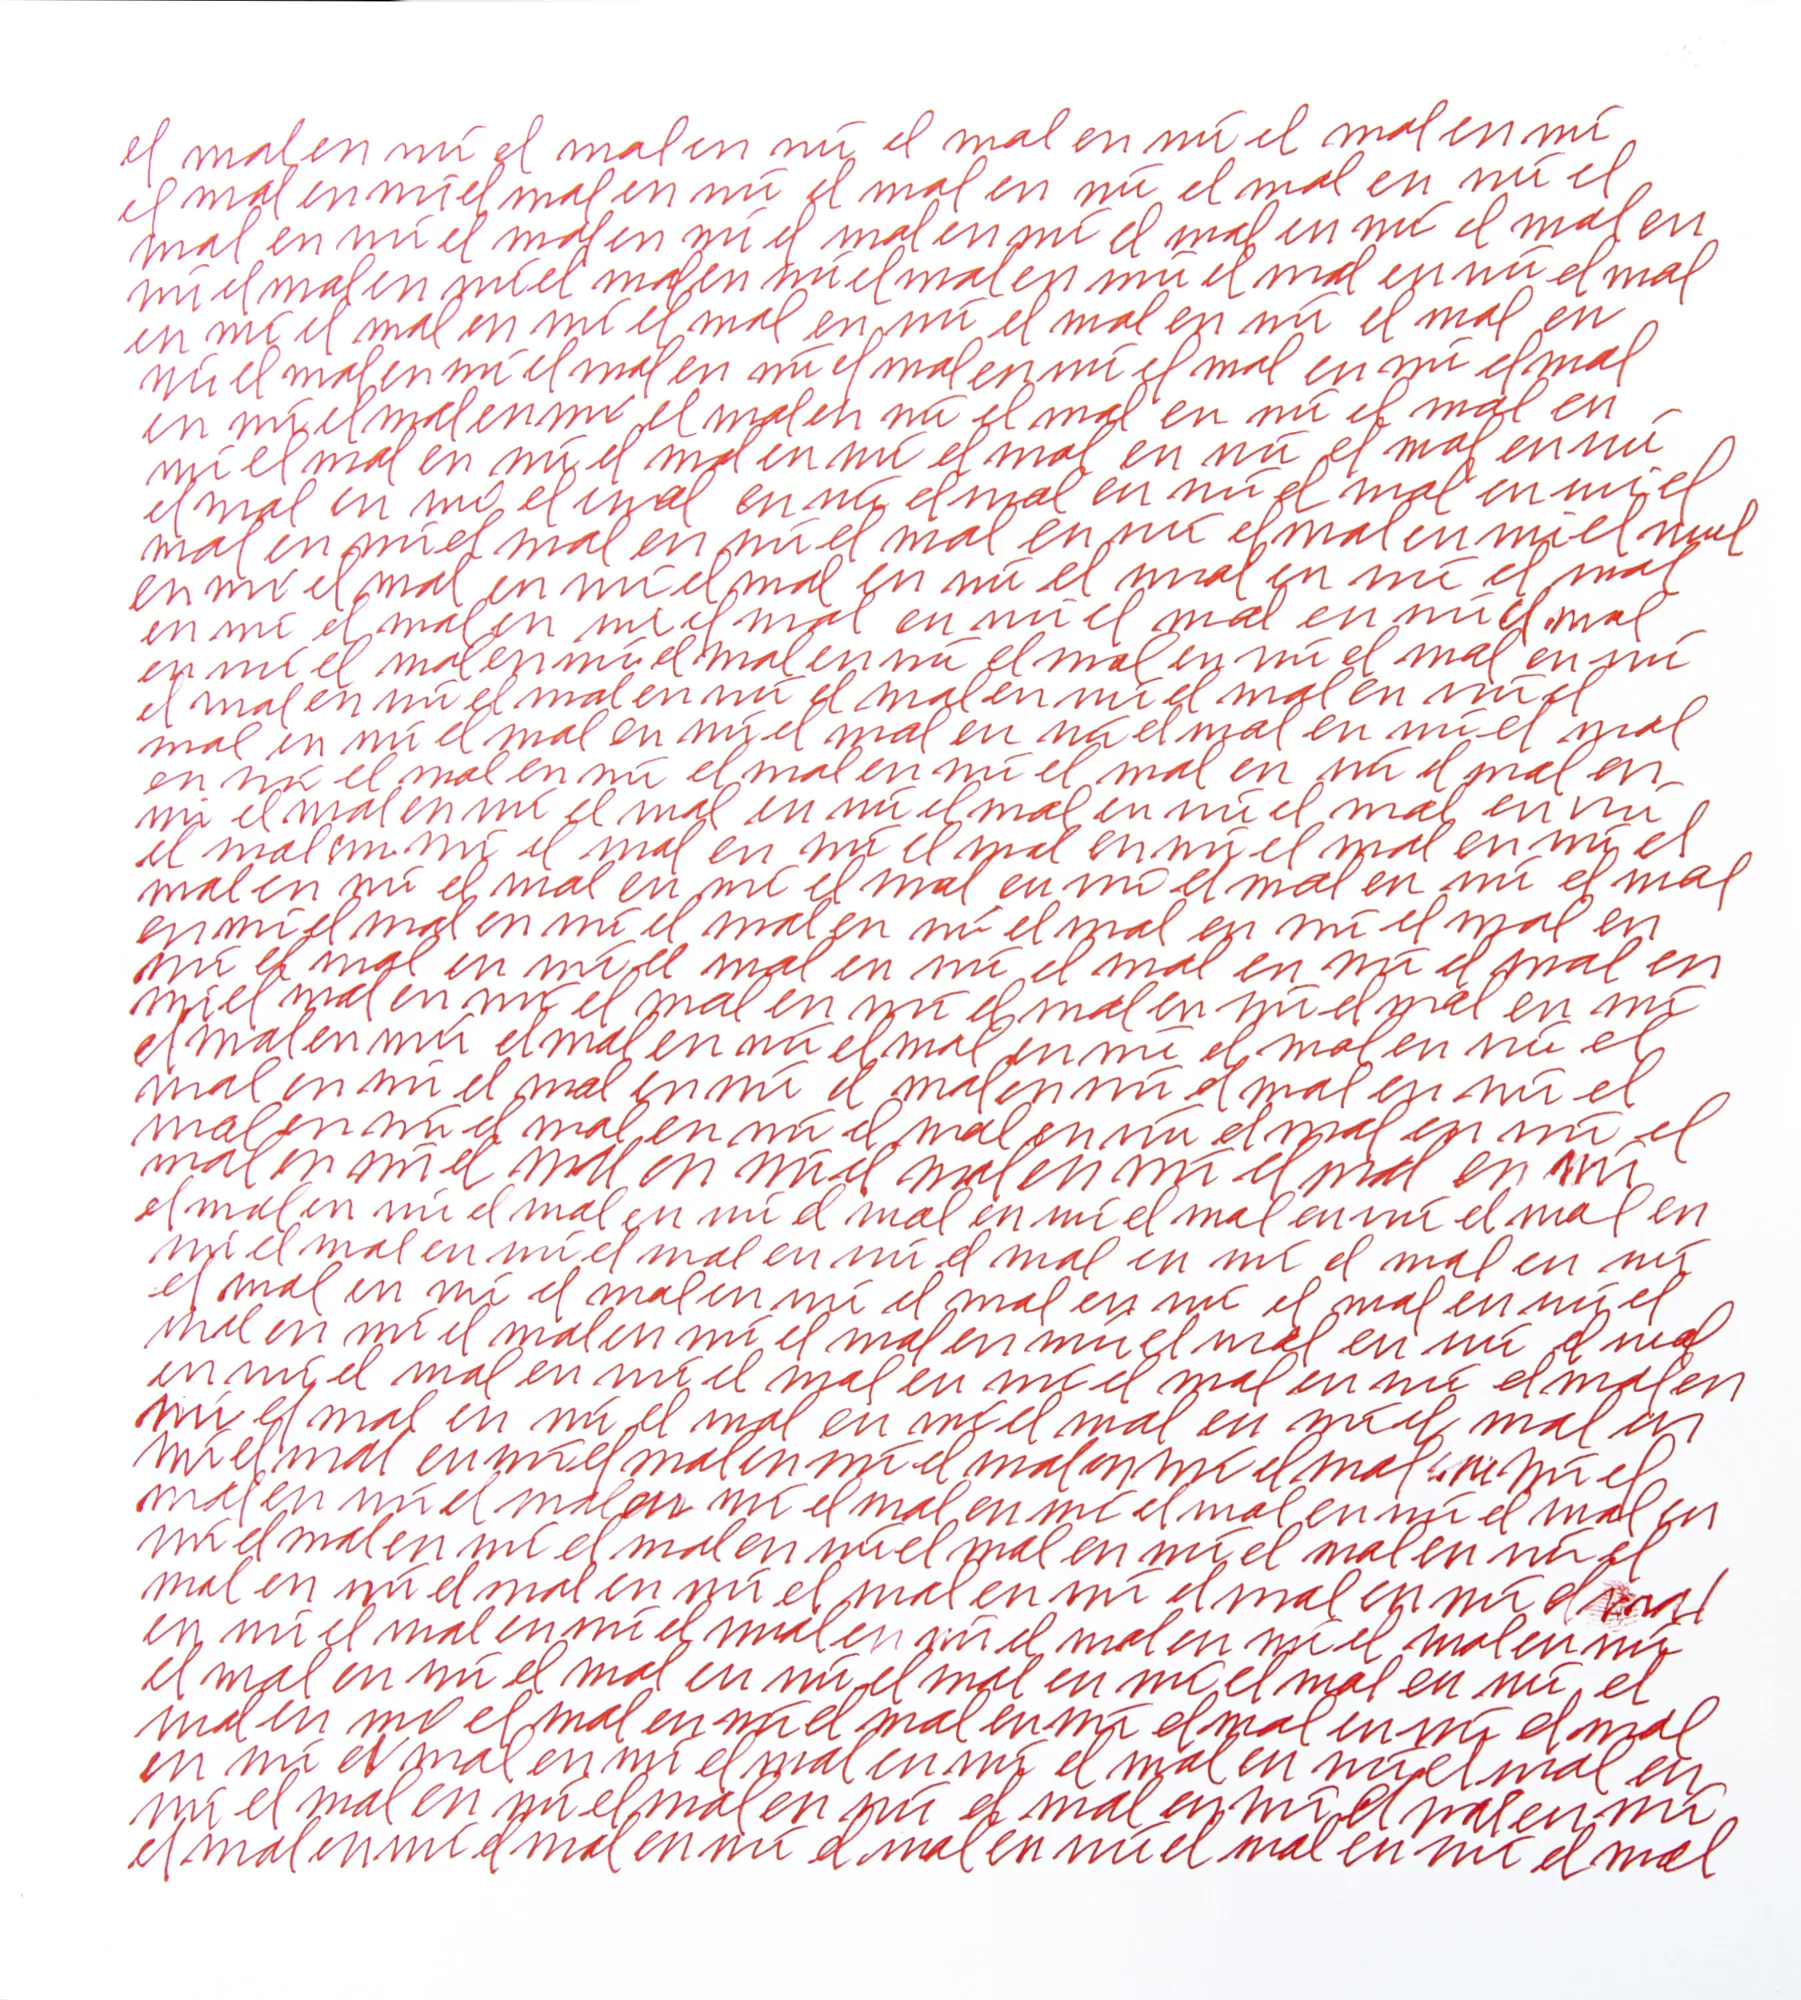 el mal en mí el mal en mí el mal en mí el mal en mí
el mal en mí el mal en mí el mal en mí el mal en mí el
mal en mí el mal en mí el mal en mí el mal en mí el mal en
mí el mal en mí el mal en mí el mal en mí el mal en mí el mal
en mí el mal en mí el mal en mí el mal en mí el mal en
mí el mal en mí el mal en mí el mal en mí el mal en mí el mal
en mí el mal en mí el mal en mí el mal en mí el mal en
mí el mal en mí el mal en mí el mal en mí el mal en mí
el mal en mí el mal en mí el mal en mí el mal en mí el
mal en mí el mal en mí el mal en mí el mal en mí el mal
en mí el mal en mí el mal en mí el mal en mí el mal
en mí el mal en mí el mal en mí el mal en mí el mal
en mí el mal en mí el mal en mí el mal en mí el mal en mí
el mal en mí el mal en mí el mal en mí el mal en mí el
mal en mí el mal en mí el mal en mí el mal en mí el mal
en mí el mal en mí el mal en mí el mal en mí el mal en
mi el mal en mí el mal en mí el mal en mí el mal en mí
el mal en mí el mal en mí el mal en mí el mal en mí el
mal en mí el mal en mí el mal en mí el mal en mí el mal
en mí el mal en mí el mal en mí el mal en mí el mal en
mí el mal en mí el mal en mí el mal en mí el mal en
mi el mal en mí el mal en mí el mal en mí el mal en mí
el mal en mí el mal en mí el mal en mí el mal en mí el
mal en mí el mal en mí el mal en mí el mal en mí el
mal en mí el mal en mí el mal en mí el mal en mí el
mal en mí el mal en mí el mal en mí el mal en mi
el mal en mí el mal en mí el mal en mí el mal en mí el mal en
mi el mal en mí el mal en mí el mal en mí el mal en mí
el mal en mí el mal en mí el mal en mí el mal en mí el
mal en mí el mal en mí el mal en mí el mal en mí el mal
en mí el mal en mí el mal en mí el mal en mí el mal en
mí el mal en mí el mal en mí el mal en mí el mal en
mí el mal en mí el mal en mí el mal en mí el mal en mí el
mal en mí el mal en mí el mal en mí el mal en mí el mal en
mí el mal en mí el mal en mí el mal en mí el mal en mí el
mal en mí el mal en mí el mal en mí el mal en mí el mal
en mí el mal en mí el mal en mí el mal en mí el mal en mí
el mal en mí el mal en mí el mal en mí el mal en mí el
mal en mí el mal en mí el mal en mí el mal en mí el mal
en mí el mal en mí el mal en mí el mal en mí el mal en
mí el mal en mí el mal en mí el mal en mí el mal en mí
el mal en mí el mal en mí el mal en mí el mal en mí el mal